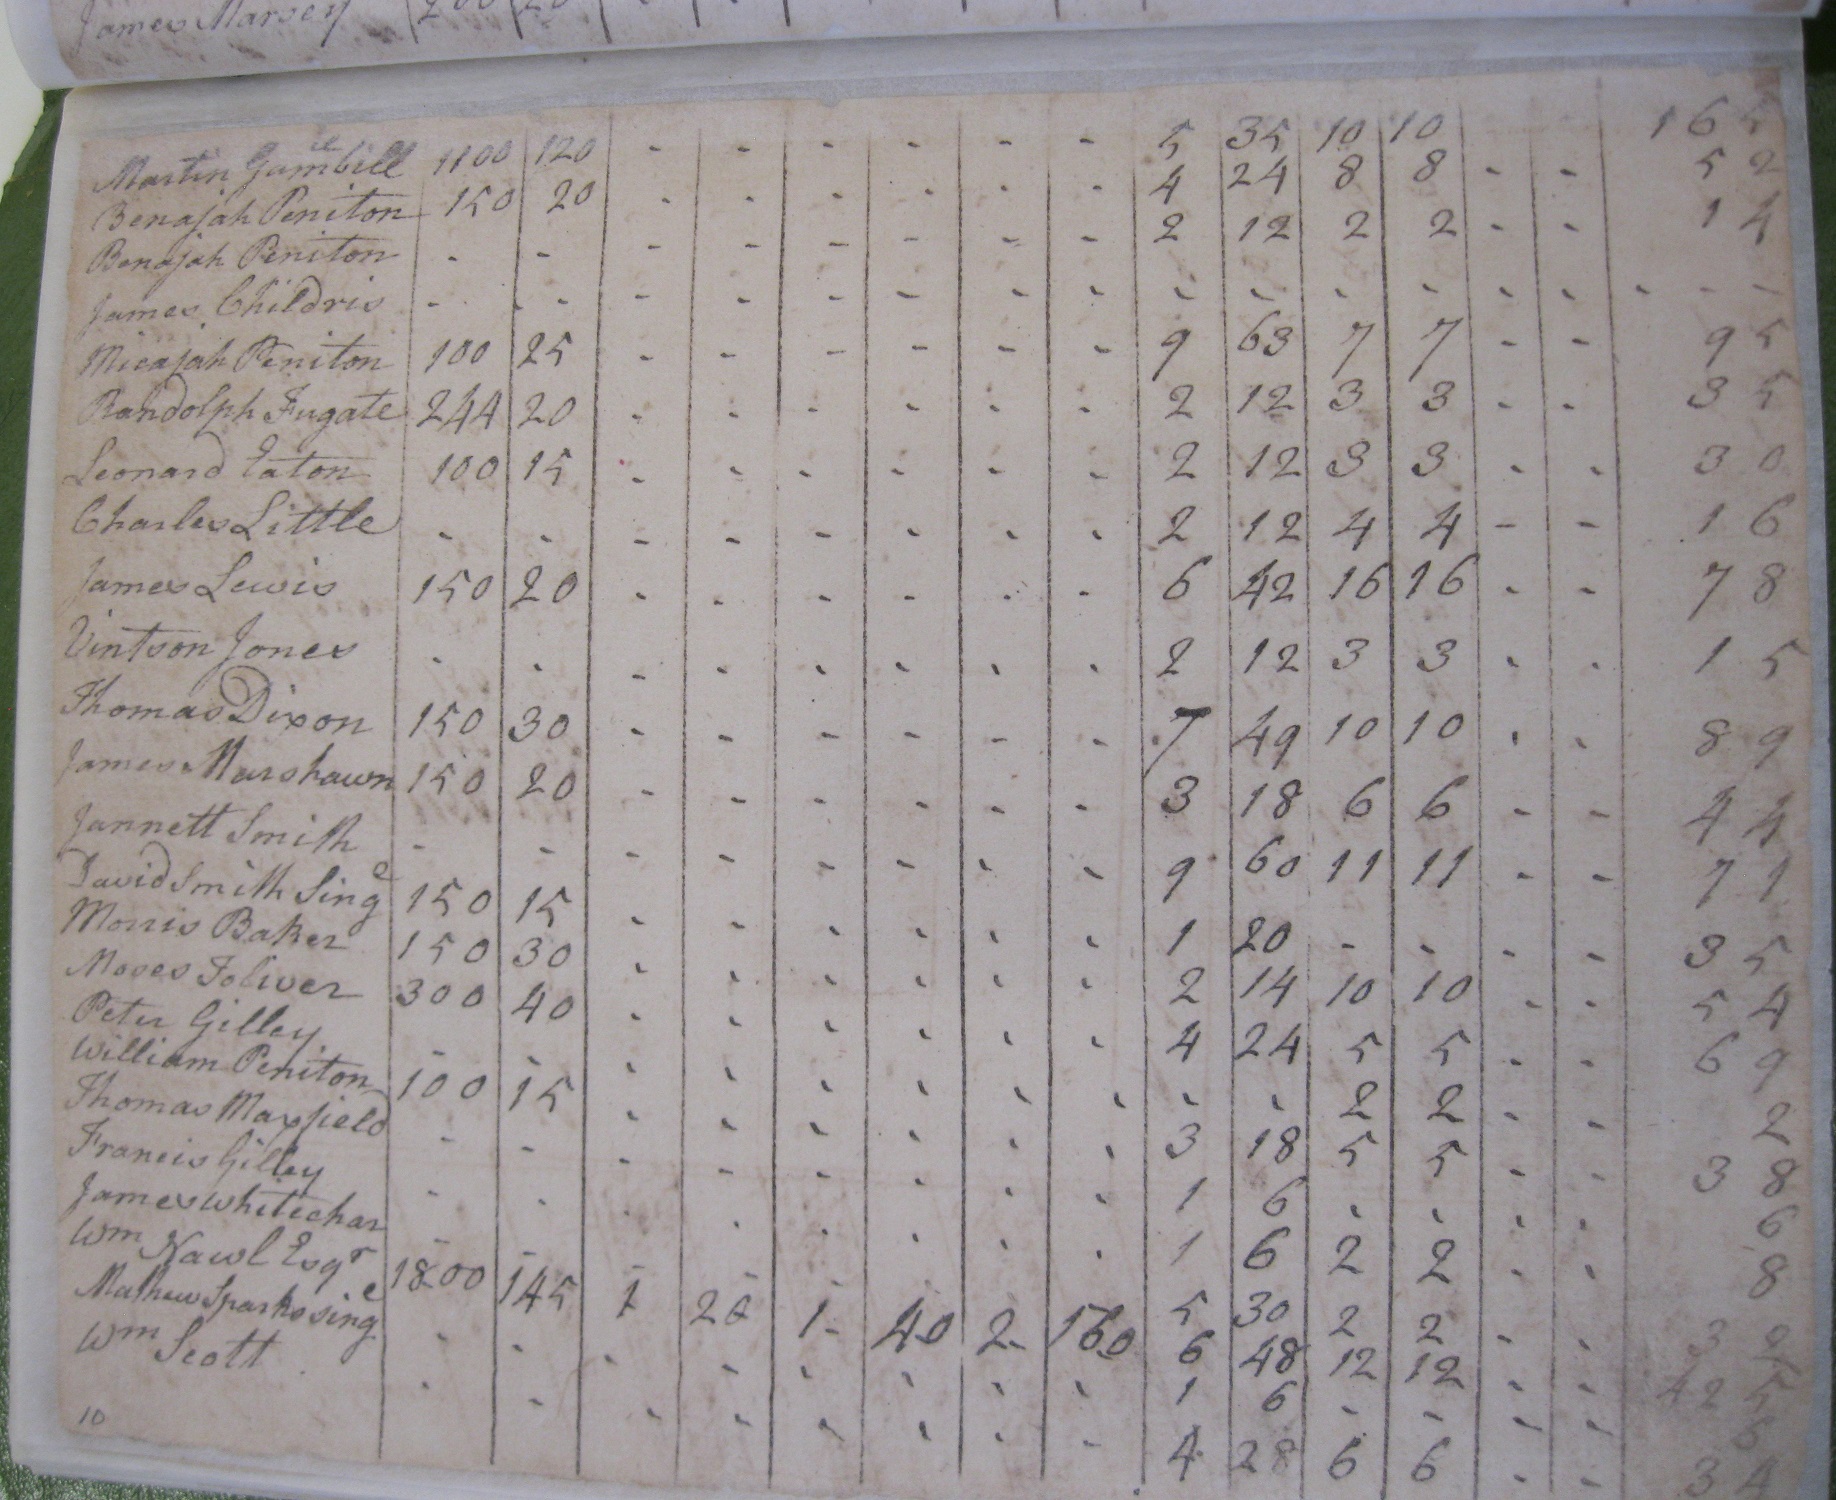 James Marsey 200 20
Martin Gambill 1100 120 - - - - - - 5 35 10 10 165
Benajah Peniton 150 20 - - - - - - 4 24 8 8 - - 52
Benajah Peniton - - - - - - - - 2 12 2 2 - - 14
James Childris - - - - - - - - - - - - - - - - -
Micajah Peniton 100 25 - - - - - - 9 63 7 7 - - 95
Randolph Fugate 244 20 - - - - - - 2 12 3 3 - - 35
Leonard Eaton 100 15 - - - - - - 2 12 3 3 - - 30
Charles Little - - - - - - - - 2 12 4 4 - - 16
James Lewis 150 20 - - - - - - 6 42 16 16 - - 78
Vintson Jones - - - - - - - - 2 12 3 3 - - 15
Thomas Dixon 150 30 - - - - - - 7 49 10 10 - - 89
James Marshawn 150 20 - - - - - - 3 18 6 6 - - 44
Jannett Smith - - - - - - - - 9 60 11 11 - - 71
David Smith Singe 150 15 - - - - - - 1 20 - - - - 35
Morris Baker 150 30 - - - - - - 2 14 10 10 - - 54
Moses Toliver 300 40 - - - - - - 4 24 5 5 - - 69
Peter Gilley - - - - - - - - - - 2 2 - - 2
William Peniton 100 15 - - - - - - 3 18 5 5 - - 38
Thomas Maxfield - - - - - - - - 1 6 - - - - 6
Francis Gilley - - - - - - - - 1 6 2 2 - - 8
James Whitechar - - - - - - - - 5 30 2 2 - - 32
Wm Nawl Esqr 1800 145 1 20 1 40 2 160 6 48 12 12 - - 425
Mathew Sparks singe - - - - - - - - 1 6 - - - - 6
Wm Scott - - - - - - - - 4 28 6 6 - - 34
10